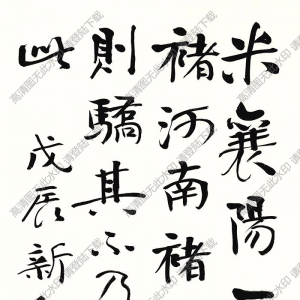 米襄陽
褚河南褚
則驕其示乃
此
戊辰新
高清图无此水印 请登陆下载